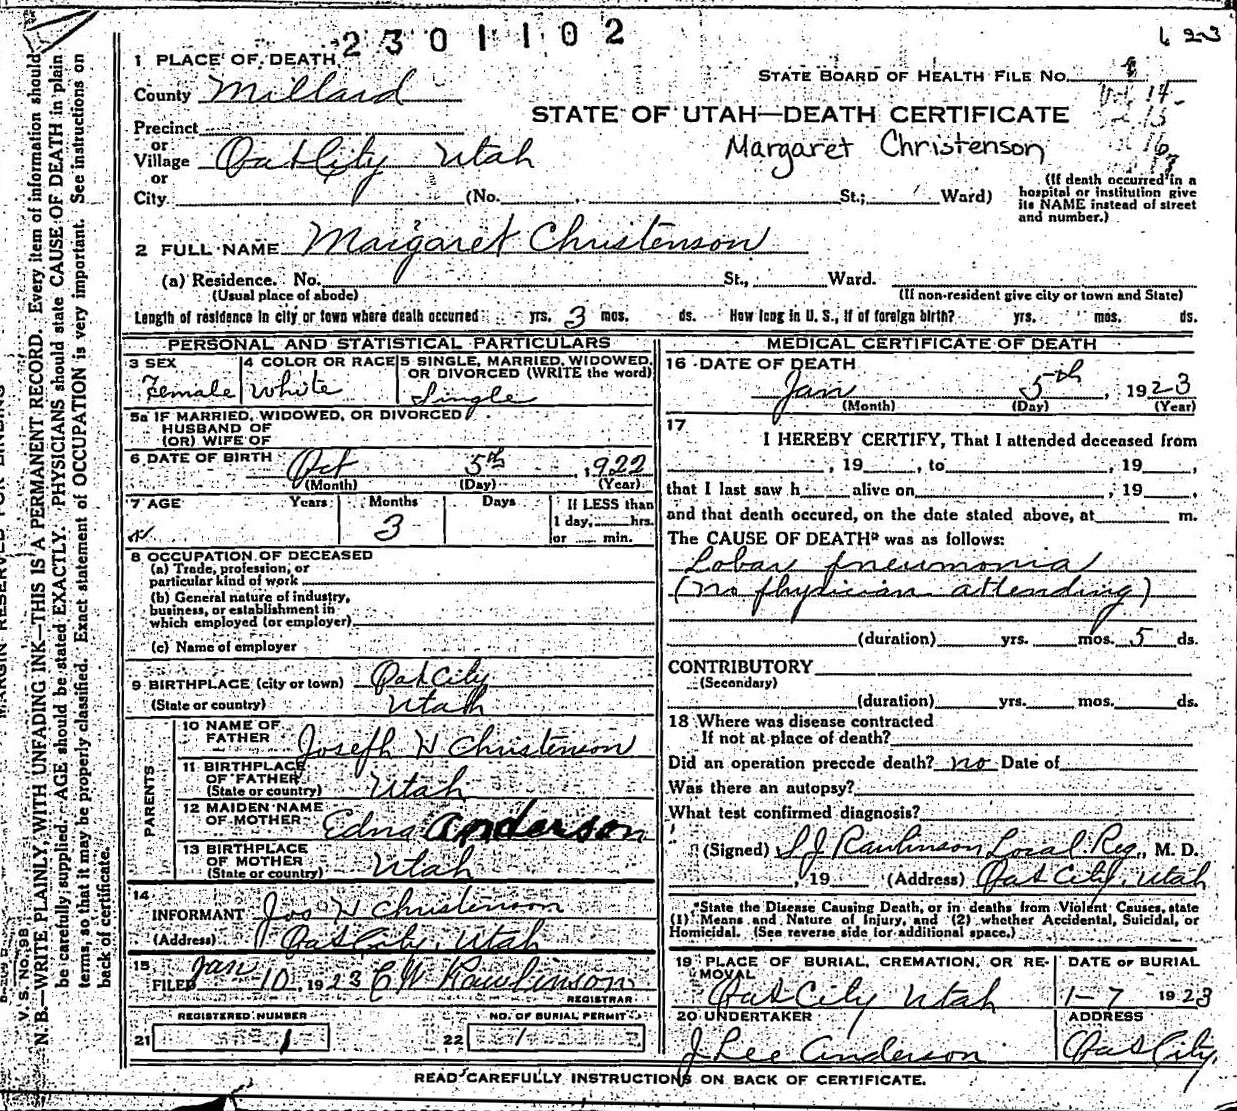 2301102
623
1 PLACE OF DEATH
STATE BOARD OF HEALTH FILE No.
County Millard
STATE OF UTAH—DEATH CERTIFICATE
Precinct
or
Village Oak City Utah
Margaret Christenson
or
City (No. St.; Ward)
(If death occurred in a
hospital or institution give
its NAME instead of street
and number.)
2 FULL NAME Margaret Christenson
(a) Residence. No. St., Ward.
(Usual place of abode) (If non-resident give city or town and State)
Length of residence in city or town where death occurred yrs. 3 mos. ds. How long in U. S., if of foreign birth? yrs. mos. ds.
PERSONAL AND STATISTICAL PARTICULARS
3 SEX 4 COLOR OR RACE 5 SINGLE, MARRIED, WIDOWED,
OR DIVORCED (WRITE the word)
Female White Single
5a IF MARRIED, WIDOWED, OR DIVORCED
HUSBAND OF
(OR) WIFE OF
6 DATE OF BIRTH Oct 5th, 1922
(Month) (Day) (Year)
7 AGE Years Months Days If LESS than
3 1 day, hrs.
or min.
8 OCCUPATION OF DECEASED
(a) Trade, profession, or
particular kind of work
(b) General nature of industry,
business, or establishment in
which employed (or employer)
(c) Name of employer
9 BIRTHPLACE (city or town) Oak City
(State or country) Utah
PARENTS
10 NAME OF
FATHER Joseph W Christenson
11 BIRTHPLACE
OF FATHER
(State or country) Utah
12 MAIDEN NAME
OF MOTHER Edna Anderson
13 BIRTHPLACE
OF MOTHER
(State or country) Utah
14
INFORMANT Jos W Christenson
(Address) Oak City, Utah
15
FILED Jan 10, 1923 C W Rawlinson
REGISTRAR
REGISTERED NUMBER NO. OF BURIAL PERMIT
21 1 22 1
MEDICAL CERTIFICATE OF DEATH
16 DATE OF DEATH
Jan 5th, 1923
(Month) (Day) (Year)
17
I HEREBY CERTIFY, That I attended deceased from
, 19 , to , 19 ,
that I last saw h alive on , 19 ,
and that death occured, on the date stated above, at m.
The CAUSE OF DEATH* was as follows:
Lobar pneumonia
(no physician attending)
(duration) yrs. mos. 5 ds.
CONTRIBUTORY
(Secondary)
(duration) yrs. mos. ds.
18 Where was disease contracted
If not at place of death?
Did an operation precede death? no Date of
Was there an autopsy?
What test confirmed diagnosis?
(Signed) S J Rawlinson Local Reg, M. D.
, 19 (Address) Oak City, Utah
*State the Disease Causing Death, or in deaths from Violent Causes, state
(1) Means and Nature of Injury, and (2) whether Accidental, Suicidal, or
Homicidal. (See reverse side for additional space.)
19 PLACE OF BURIAL, CREMATION, OR RE-
MOVAL
DATE OF BURIAL
Oak City Utah 1-7 1923
20 UNDERTAKER ADDRESS
J Lee Anderson Oak City
READ CAREFULLY INSTRUCTIONS ON BACK OF CERTIFICATE.
MARGIN RESERVED FOR BINDING
V. S. NO. 98
N. B.—WRITE PLAINLY, WITH UNFADING INK—THIS IS A PERMANENT RECORD. Every item of information should
be carefully supplied. AGE should be stated EXACTLY. PHYSICIANS should state CAUSE OF DEATH in plain
terms, so that it may be properly classified. Exact statement of OCCUPATION is very important. See instructions on
back of certificate.